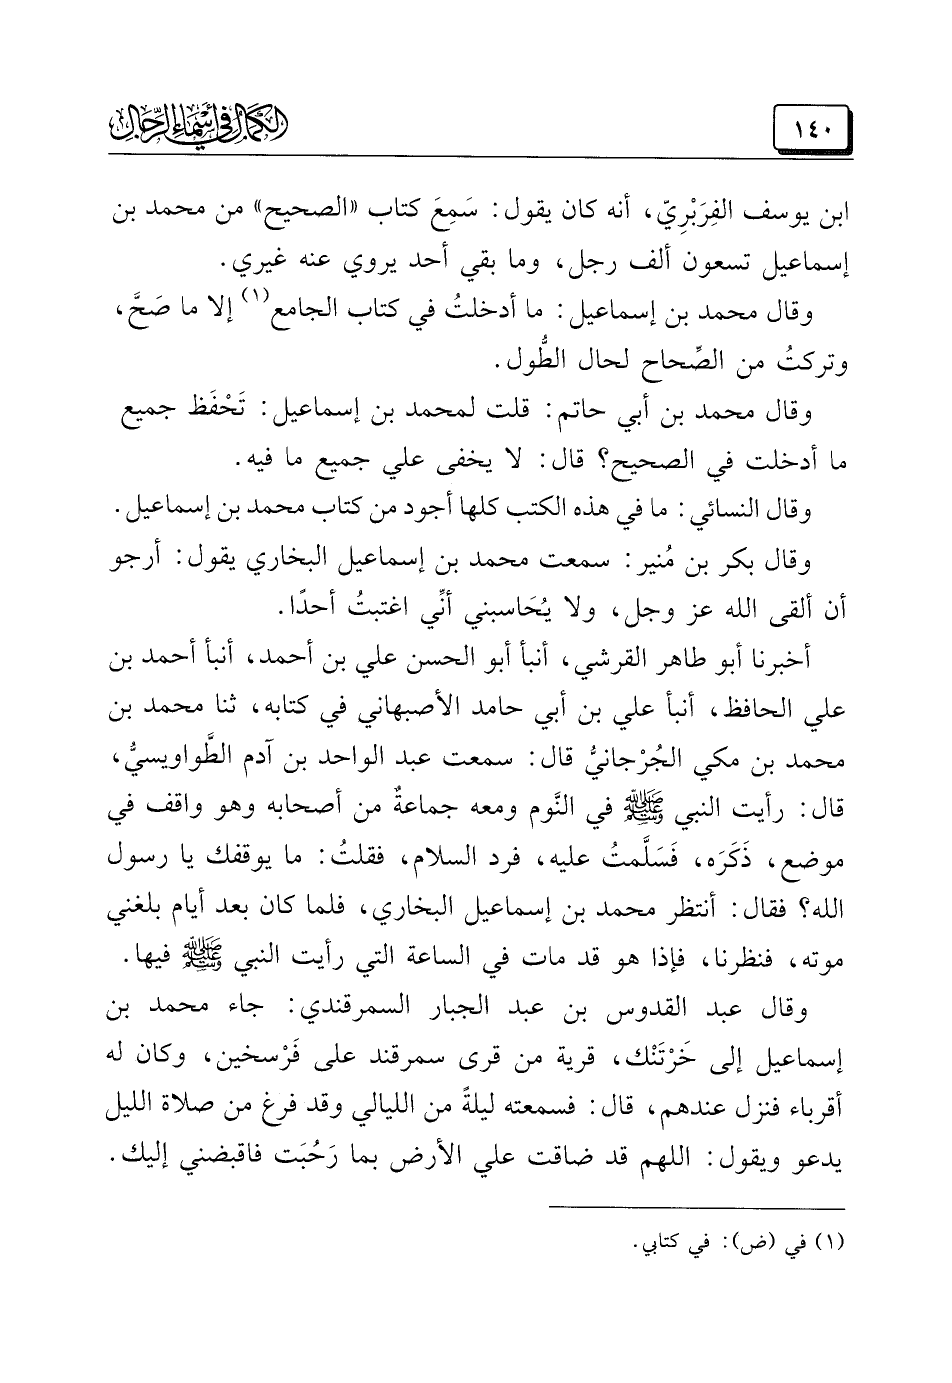 ١٤٠
الكمال في أسماء الرجال
ابن يوسف الفِرَبْرِيّ، أنه كان يقول: سَمِعَ كتاب «الصحيح» من محمد بن
إسماعيل تسعون ألف رجل، وما بقي أحد يروي عنه غيري.
وقال محمد بن إسماعيل: ما أدخلتُ في كتاب الجامع(١) إلا ما صَحَّ،
وتركتُ من الصِّحاح لحال الطُّول.
وقال محمد بن أبي حاتم: قلت لمحمد بن إسماعيل: تَحْفَظ جميع
ما أدخلت في الصحيح؟ قال: لا يخفى علي جميع ما فيه.
وقال النسائي: ما في هذه الكتب كلها أجود من كتاب محمد بن إسماعيل.
وقال بكر بن مُنير: سمعت محمد بن إسماعيل البخاري يقول: أرجو
أن ألقى الله عز وجل، ولا يُحَاسبني أنِّي اغتبتُ أحدًا.
أخبرنا أبو طاهر القرشي، أنبأ أبو الحسن علي بن أحمد، أنبأ أحمد بن
علي الحافظ، أنبأ علي بن أبي حامد الأصبهاني في كتابه، ثنا محمد بن
محمد بن مكي الجُرْجانيُّ قال: سمعت عبد الواحد بن آدم الطَّواويسيُّ،
قال: رأيت النبي ﷺ في النَّوم ومعه جماعةٌ من أصحابه وهو واقف في
موضع، ذَكَرَه، فَسَلَّمتُ عليه، فرد السلام، فقلتُ: ما يوقفك يا رسول
الله؟ فقال: أنتظر محمد بن إسماعيل البخاري، فلما كان بعد أيام بلغني
موته، فنظرنا، فإذا هو قد مات في الساعة التي رأيت النبي ﷺ فيها.
وقال عبد القدوس بن عبد الجبار السمرقندي: جاء محمد بن
إسماعيل إلى خَرْتَنْك، قرية من قرى سمرقند على فَرْسخين، وكان له
أقرباء فنزل عندهم، قال: فسمعته ليلةً من الليالي وقد فرغ من صلاة الليل
يدعو ويقول: اللهم قد ضاقت علي الأرض بما رَحُبَت فاقبضني إليك.
(١) في (ض): في كتابي.